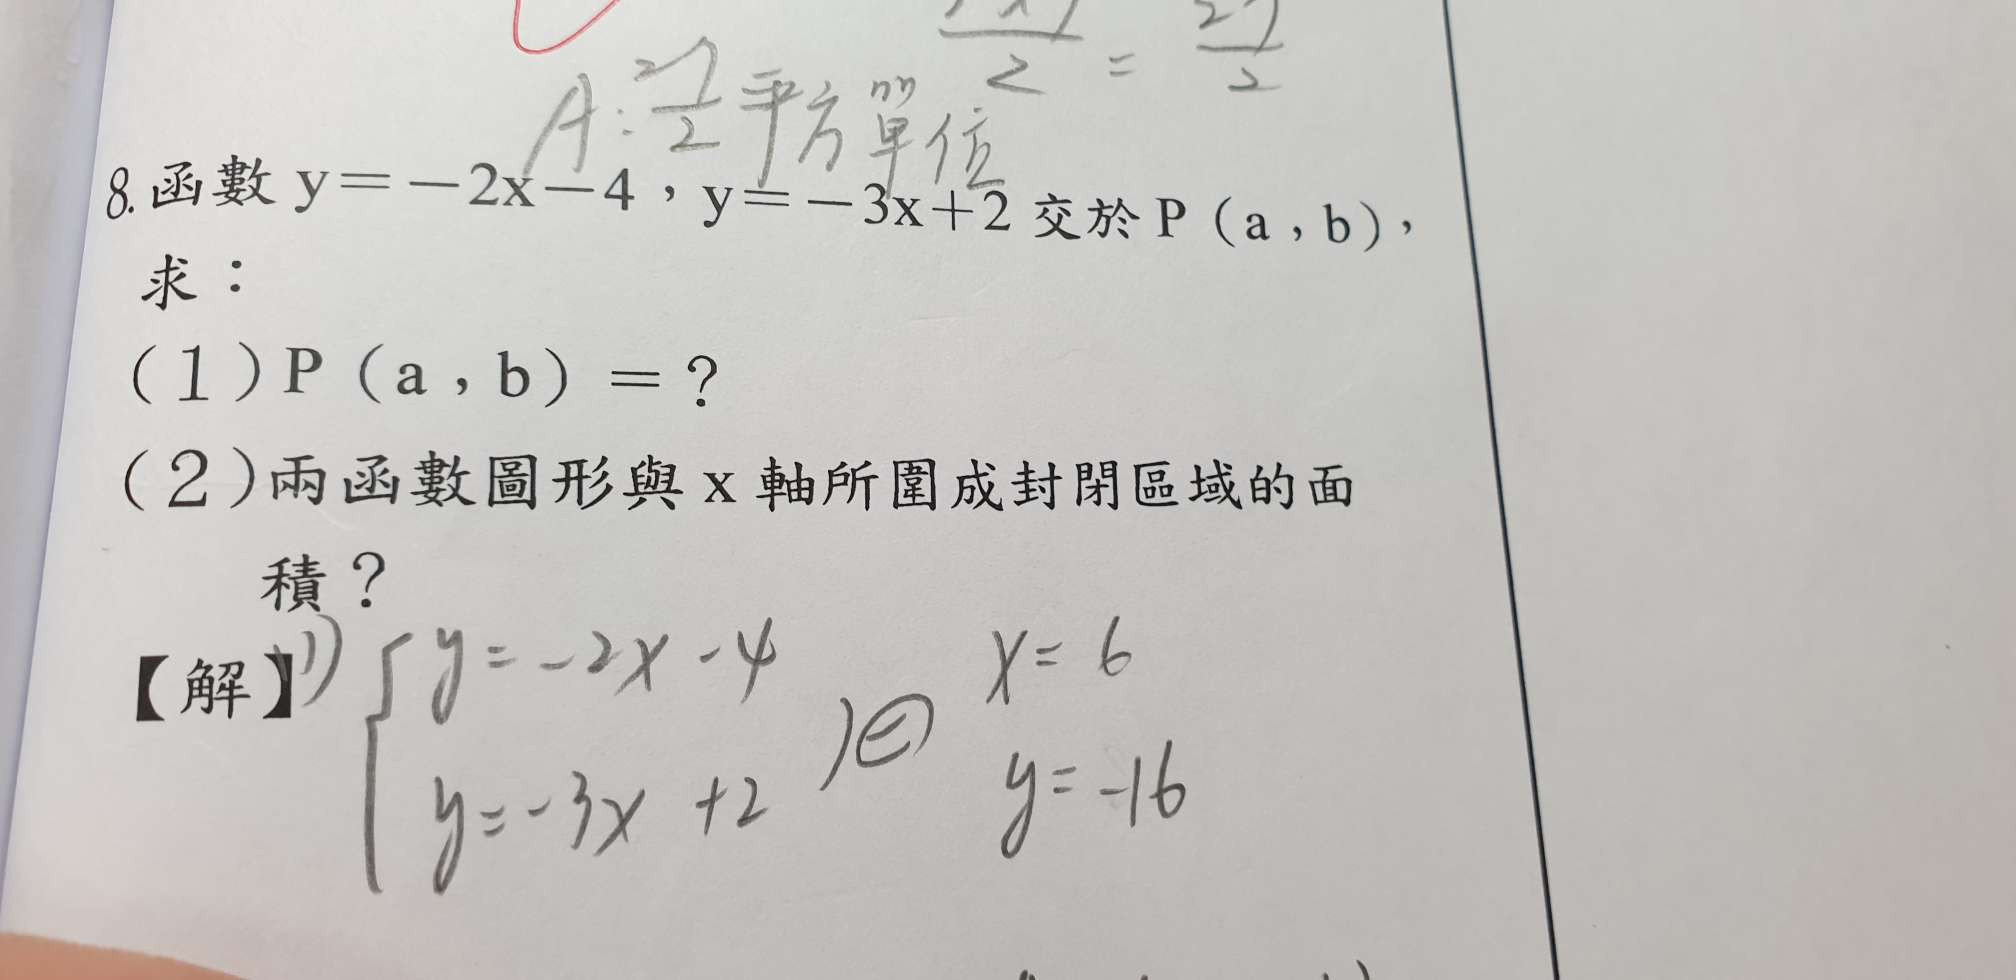 2 = 2
A: 27/2 平方單位
8.函數 y=-2x-4,y=-3x+2 交於 P(a,b),
求:
(1)P(a,b)=?
(2)兩函數圖形與 x 軸所圍成封閉區域的面
積?
【解】1) { y=-2x-4 x=6
y=-3x+2 )⊖ y=-16